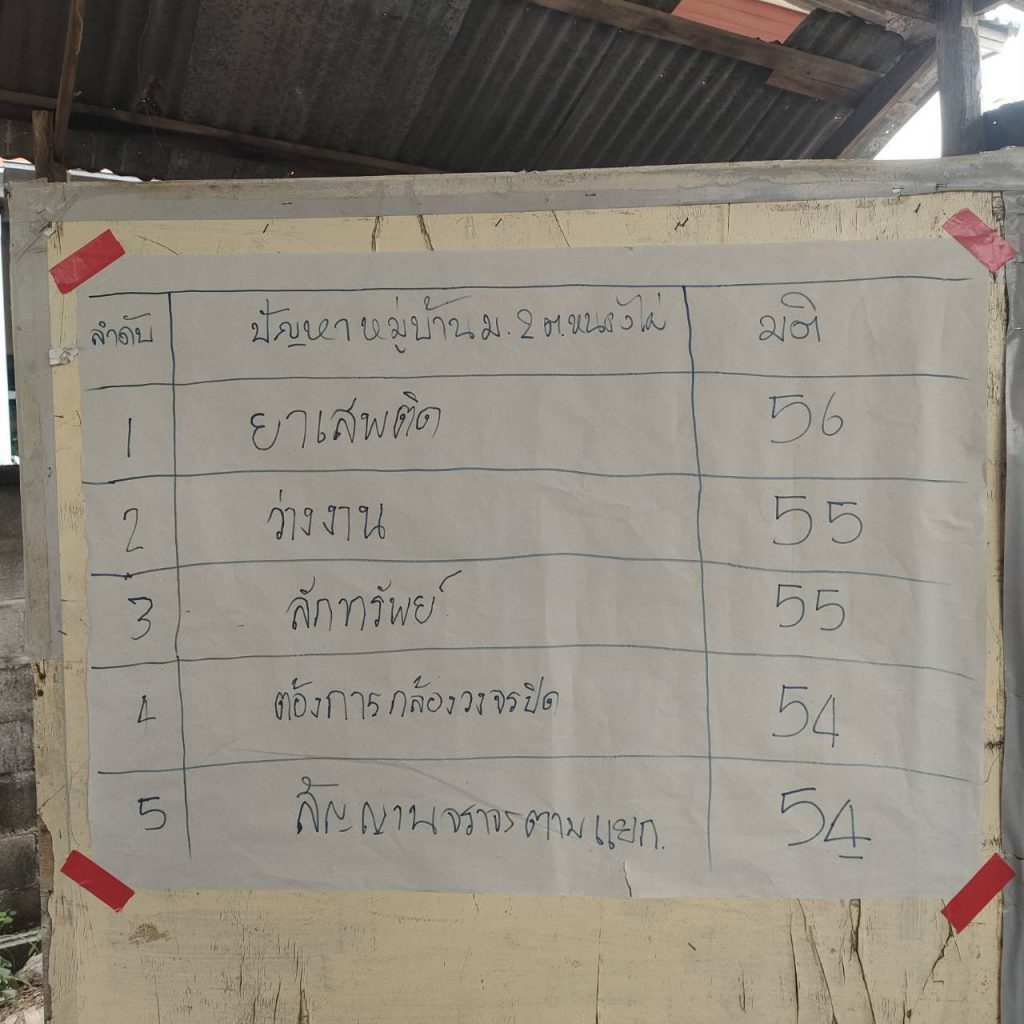 ลำดับ ปัญหาหมู่บ้าน ม.2 ต.หนองไผ่ มติ
1 ยาเสพติด 56
2 ว่างงาน 55
3 ลักทรัพย์ 55
4 ต้องการกล้องวงจรปิด 54
5 สัญญานจราจรตามแยก. 54